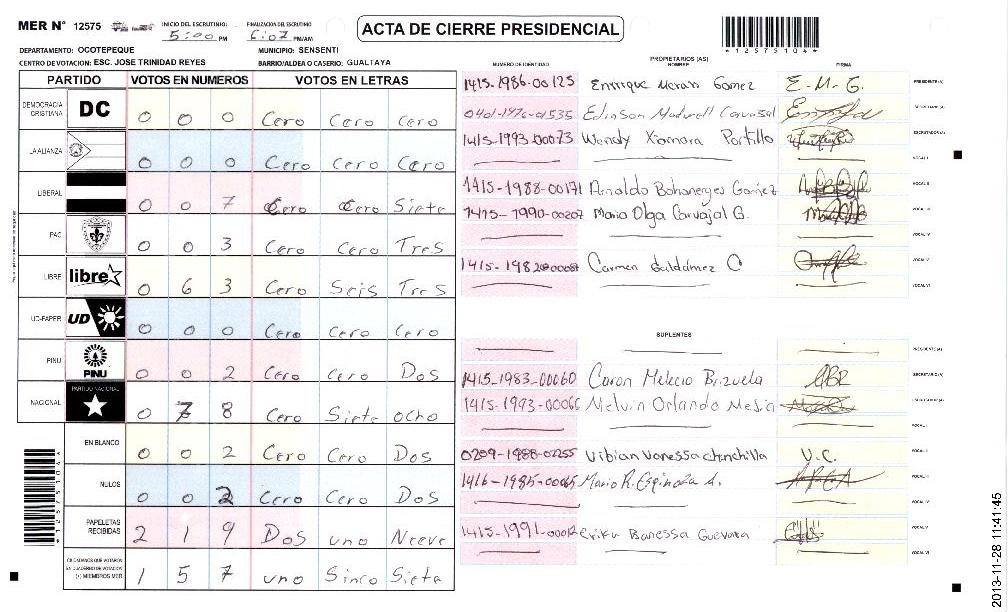 MER N° 12575 INICIO DEL ESCRUTINIO 5:00 PM FINALIZACION DEL ESCRUTINIO 6:07 PM/AM
ACTA DE CIERRE PRESIDENCIAL
*1257510 4*
DEPARTAMENTO: OCOTEPEQUE MUNICIPIO: SENSENTI
CENTRO DE VOTACION: ESC. JOSE TRINIDAD REYES BARRIO/ALDEA O CASERIO: GUALTAYA
PARTIDO VOTOS EN NUMEROS VOTOS EN LETRAS
DEMOCRACIA CRISTIANA DC 0 0 0 Cero Cero Cero
LA ALIANZA 0 0 0 Cero Cero Cero
LIBERAL 0 0 7 Cero Cero Siete
PAC 0 0 3 Cero Cero Tres
LIBRE libre 0 6 3 Cero Seis Tres
UD-FAPER UD 0 0 0 Cero Cero Cero
PINU PINU 0 0 2 Cero Cero Dos
NACIONAL PARTIDO NACIONAL 0 7 8 Cero Siete ocho
EN BLANCO 0 0 2 Cero Cero Dos
NULOS 0 0 2 Cero Cero Dos
PAPELETAS RECIBIDAS 2 1 9 Dos uno Nueve
CIUDADANOS QUE VOTARON EN CUADERNO DE VOTACION (+) MIEMBROS MER 1 5 7 uno Sinco Siete
PROPIETARIOS (AS)
NUMERO DE IDENTIDAD NOMBRE FIRMA
1415-1986-00125 Enrrique Moran Gomez E.M.G. PRESIDENTE(A)
Edinson Carvajal SECRETARIO(A)
1415-1993-00073 Wendy Xiomara Portillo ESCRUTADOR(A)
VOCAL I
1415-1988-00171 Arnaldo Bohanerges Gomez VOCAL II
1415-1990-00207 Maria Olga Carvajal G. VOCAL III
VOCAL IV
Carmen Galdámez C VOCAL V
VOCAL VI
SUPLENTES
PRESIDENTE(A)
1415-1983-00060 Caron Melecio Brizuela SECRETARIO(A)
1415-1993-00066 Melvin Orlando Mejia ESCRUTADOR(A)
VOCAL I
0209-1988-02255 Vibian Vanessa chinchilla V.C. VOCAL II
1416-1985-00065 Mario R. Espinoza VOCAL III
VOCAL IV
Erika Banessa Guevara VOCAL V
VOCAL VI
2013-11-28 11:41:45